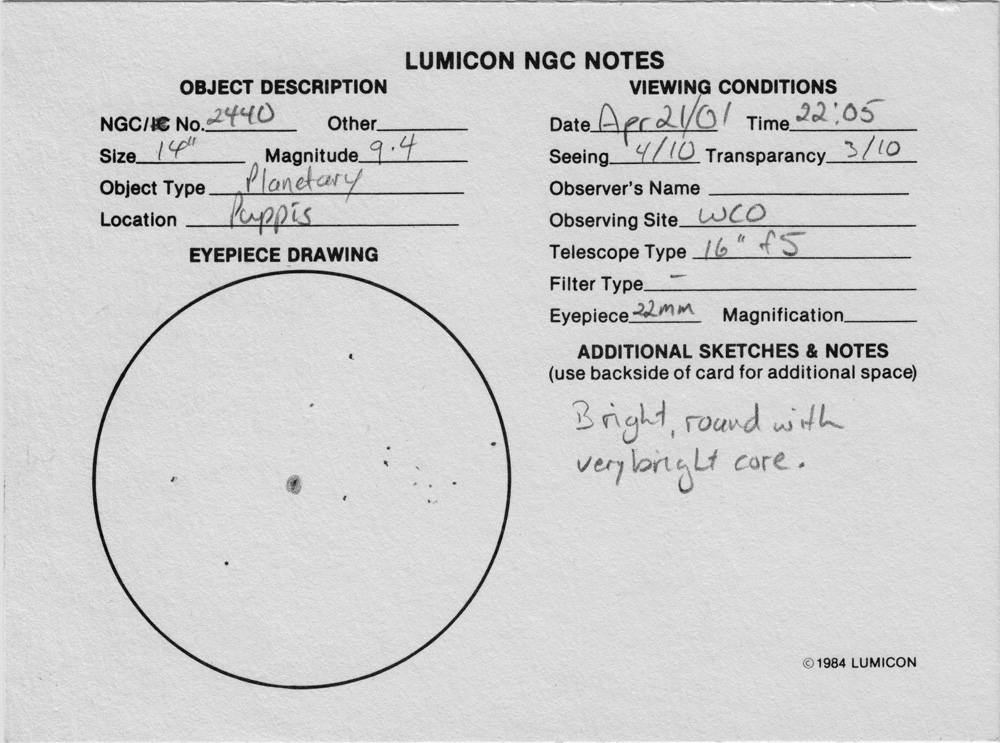 LUMICON NGC NOTES
OBJECT DESCRIPTION
NGC/IC No. 2440 Other
Size 14" Magnitude 9.4
Object Type Planetary
Location Puppis
EYEPIECE DRAWING
VIEWING CONDITIONS
Date Apr 21/01 Time 22:05
Seeing 4/10 Transparancy 3/10
Observer's Name
Observing Site WCO
Telescope Type 16" f5
Filter Type -
Eyepiece 22mm Magnification
ADDITIONAL SKETCHES & NOTES
(use backside of card for additional space)
Bright, round with
very bright core.
©1984 LUMICON